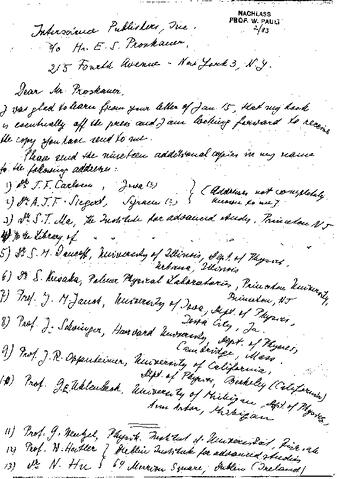 NACHLASS
PROF. W. PAULI
2/83
Interscience Publishers, Inc.
c/o Mr. E. S. Proskauer
215 Fourth Avenue - New York 3, N.Y.
Dear Mr. Proskauer,
I was glad to learn from your letter of Jan 15, that my book
is eventually off the press and I am looking forward to receive
the copy you have send to me.
Please send the nineteen additional copies in my name
to the following addresses:
1) Dr J.F. Carlson, Iowa (?)
2) Dr A.J.F. Siegert, Syracuse (?) } (Addresses not completely known to me?)
3) Dr S.T. Ma, The Institute for advanced study, Princeton NJ
4) To the Library of
5) Dr S.M. Dancoff, University of Illinois, Dept. of Physics,
Urbana, Illinois
6) Dr S. Kusaka, Palmer Physical Laboratories, Princeton University,
Princeton, NJ
7) Prof. J. M. Jauch, University of Iowa, Dept. of Physics,
Iowa City, Ia.
8) Prof. J. Schwinger, Harvard University, Dept. of Physics,
Cambridge, Mass.
9) Prof J.R. Oppenheimer, University of California,
Dept. of Physics, Berkeley (California)
10) Prof. G.E. Uhlenbeck, University of Michigan, Dept. of Physics,
Ann Arbor, Michigan
11) Prof. G. Wentzel, Physik. Institut d. Universität, Zürich
12) Prof. W. Heitler } Dublin Institute for advanced studies
13) Dr N. Hu } 64 Merrion Square, Dublin (Ireland)